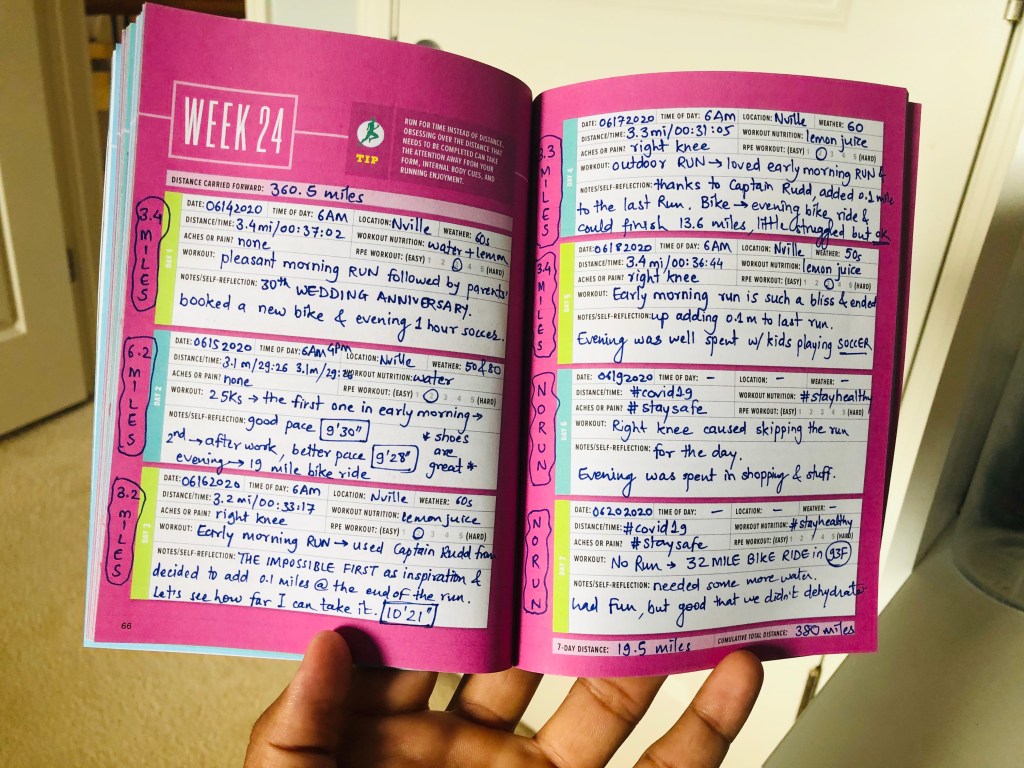 WEEK 24
TIP
RUN FOR TIME INSTEAD OF DISTANCE.
OBSESSING OVER THE DISTANCE THAT
NEEDS TO BE COMPLETED CAN TAKE
THE ATTENTION AWAY FROM YOUR
FORM, INTERNAL BODY CUES, AND
RUNNING ENJOYMENT.
DISTANCE CARRIED FORWARD: 360.5 miles
3.4 MILES
DAY 1
DATE: 06142020 TIME OF DAY: 6AM LOCATION: Nville WEATHER: 60s
DISTANCE/TIME: 3.4mi/00:37:02 WORKOUT NUTRITION: water + lemon
ACHES OR PAIN? none RPE WORKOUT: (EASY) 1 2 3 4 5 (HARD)
WORKOUT: pleasant morning RUN followed by parents'
NOTES/SELF-REFLECTION: 30th WEDDING ANNIVERSARY.
booked a new bike & evening 1 hour soccer.
6.2 MILES
DAY 2
DATE: 06152020 TIME OF DAY: 6AM 4PM LOCATION: Nville WEATHER: 50&80
DISTANCE/TIME: 3.1mi/29:26 3.1m/29: WORKOUT NUTRITION: water
ACHES OR PAIN? none RPE WORKOUT: (EASY) 1 2 3 4 5 (HARD)
WORKOUT: 2 5Ks → the first one in early morning →
NOTES/SELF-REFLECTION: good pace 9'30" * shoes
2nd → after work, better pace 9'28" are
evening → 19 mile bike ride great *
3.2 miles
DAY 3
DATE: 06162020 TIME OF DAY: 6AM LOCATION: Nville WEATHER: 60s
DISTANCE/TIME: 3.2mi/00:33:17 WORKOUT NUTRITION: lemon juice
ACHES OR PAIN? right knee RPE WORKOUT: (EASY) 1 2 3 4 5 (HARD)
WORKOUT: Early morning RUN → used Captain Rudd from
NOTES/SELF-REFLECTION: THE IMPOSSIBLE FIRST as inspiration &
decided to add 0.1 miles @ the end of the run.
Let's see how far I can take it. 10'21"
66
3.3 MILES
DAY 4
DATE: 06172020 TIME OF DAY: 6AM LOCATION: Nville WEATHER: 60
DISTANCE/TIME: 3.3mi/00:31:05 WORKOUT NUTRITION: lemon juice
ACHES OR PAIN? right knee RPE WORKOUT: (EASY) 1 2 3 4 5 (HARD)
WORKOUT: outdoor RUN → loved early morning RUN &
NOTES/SELF-REFLECTION: thanks to Captain Rudd, added 0.1 mile
to the last Run. Bike → evening bike ride &
could finish 13.6 miles, little struggled but ok
3.4 MILES
DAY 5
DATE: 06182020 TIME OF DAY: 6AM LOCATION: Nville WEATHER: 50s
DISTANCE/TIME: 3.4mi/00:36:44 WORKOUT NUTRITION: lemon juice
ACHES OR PAIN? right knee RPE WORKOUT: (EASY) 1 2 3 4 5 (HARD)
WORKOUT: Early morning run is such a bliss & ended
NOTES/SELF-REFLECTION: up adding 0.1m to last run.
Evening was well spent w/ kids playing SOCCER
NO RUN
DAY 6
DATE: 06192020 TIME OF DAY: – LOCATION: – WEATHER: –
DISTANCE/TIME: #covid19 WORKOUT NUTRITION: #stayhealthy
ACHES OR PAIN? #staysafe RPE WORKOUT: (EASY) 1 2 3 4 5 (HARD)
WORKOUT: Right knee caused skipping the run
NOTES/SELF-REFLECTION: for the day.
Evening was spent in shopping & stuff.
NO RUN
DAY 7
DATE: 06202020 TIME OF DAY: – LOCATION: – WEATHER: –
DISTANCE/TIME: #covid19 WORKOUT NUTRITION: #stayhealthy
ACHES OR PAIN? #staysafe RPE WORKOUT: (EASY) 1 2 3 4 5 (HARD)
WORKOUT: No Run → 32 MILE BIKE RIDE in 93F
NOTES/SELF-REFLECTION: needed some more water.
Had fun, but good that we didn't dehydrate
7-DAY DISTANCE: 19.5 miles CUMULATIVE TOTAL DISTANCE: 380 miles